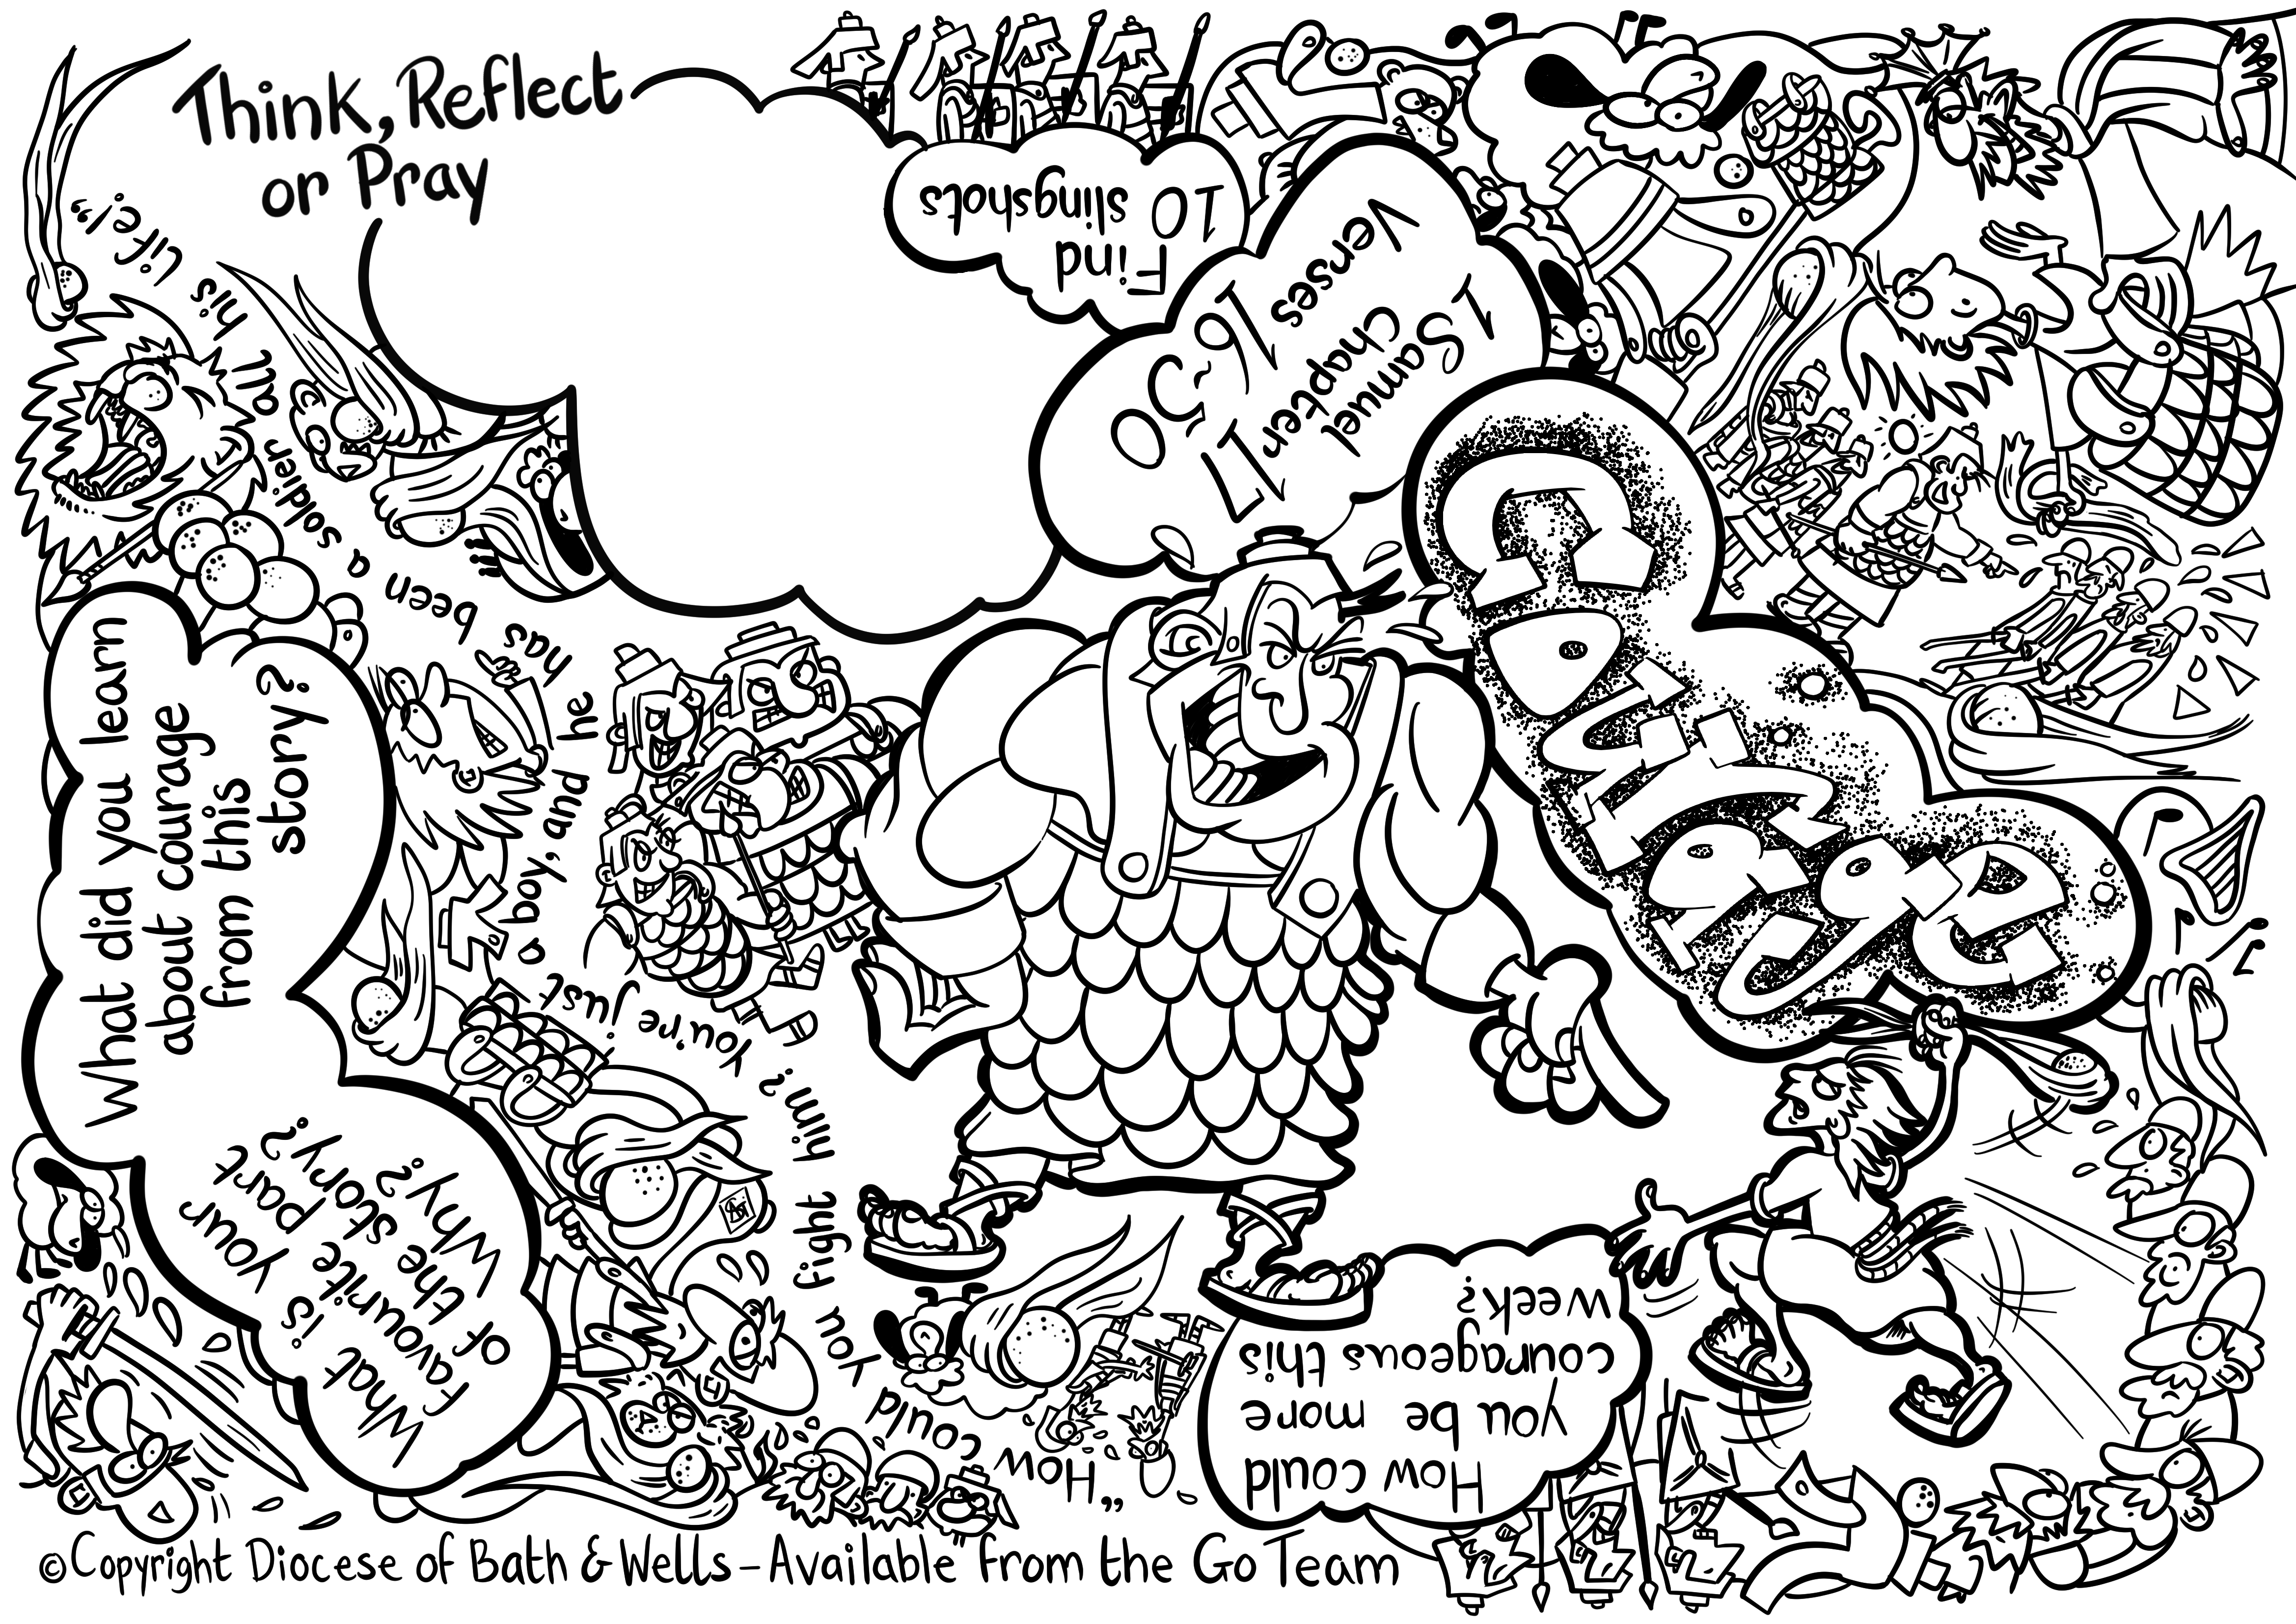 Think, Reflect
or Pray
Find
10
slingshots
1
Samuel
Chapter
17
Verses
16-50
Courage
What did you learn
about courage
from this
story?
What is your
favourite part
of the story?
Why?
"How could you fight him? You're just a boy, and he has been a soldier all his life!"
How could
you be more
courageous this
week?
©Copyright Diocese of Bath & Wells - Available from the Go Team